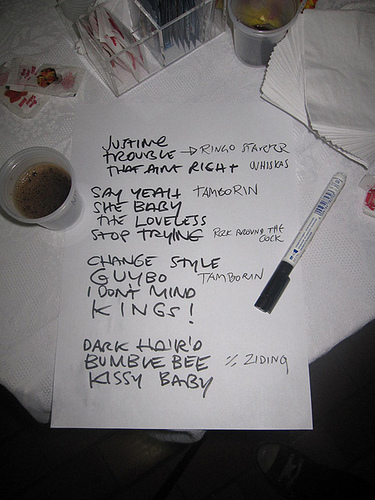 JUSTINE
TROUBLE → RINGO STARTER
THAT AINT RIGHT WHISKAS
SAY YEAH TAMBORIN
SHE BABY
THE LOVELESS
STOP TRYING ROCK AROUND THE COCK
CHANGE STYLE
GUYBO TAMBORIN
I DON'T MIND
KINGS!
DARK HAIR'D
BUMBLE BEE % ZIDING
KISSY BABY